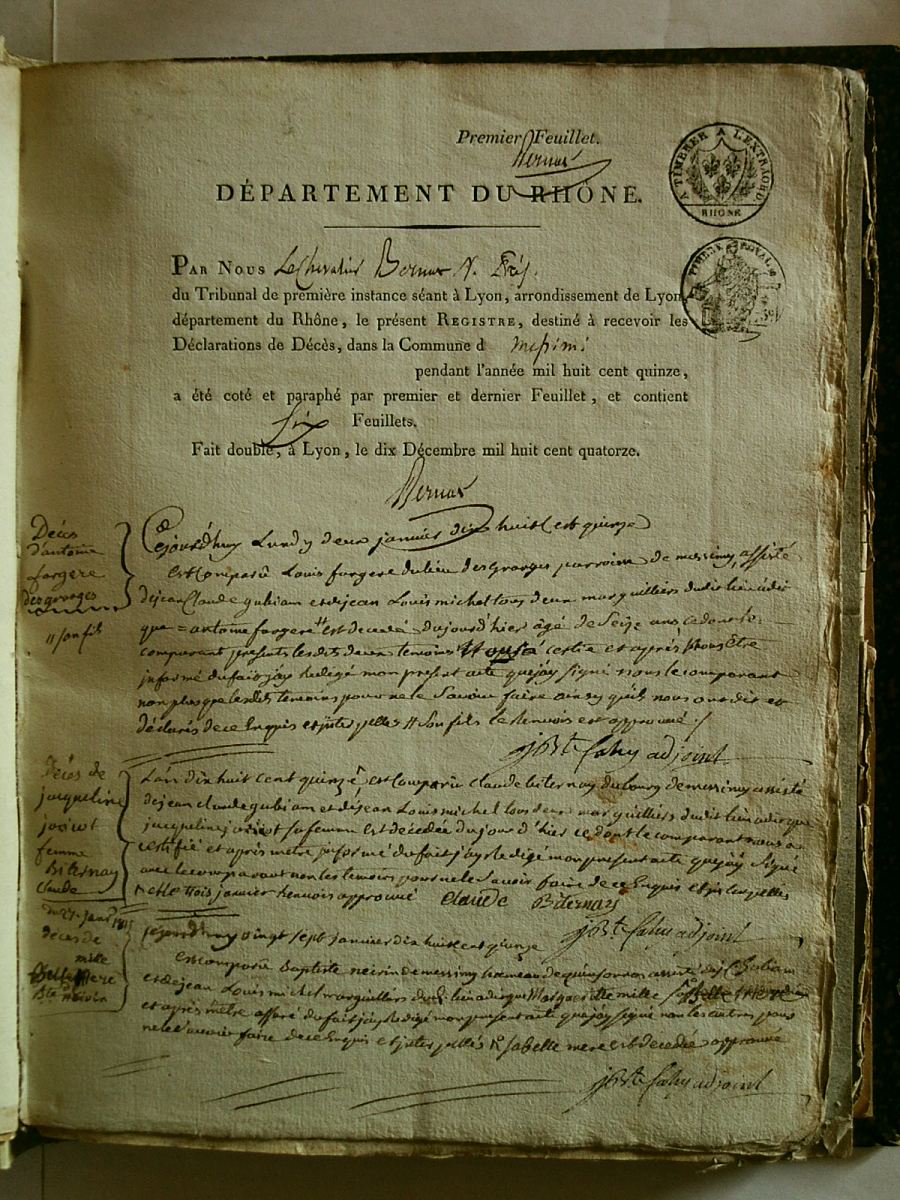 Premier Feuillet.
Bernat
DÉPARTEMENT DU RHÔNE.
A TIMBRER A L'EXTRAORD.
RHONE
TIMBRE ROYAL
PAR NOUS Le Chevalier Bernat V. Prés.
du Tribunal de première instance séant à Lyon, arrondissement de Lyon,
département du Rhône, le présent REGISTRE, destiné à recevoir les
Déclarations de Décès, dans la Commune d messimi
pendant l'année mil huit cent quinze,
a été coté et paraphé par premier et dernier Feuillet, et contient
six Feuillets.
Fait double, à Lyon, le dix Décembre mil huit cent quatorze.
Bernat
Décès
d'antoine
fargere
des granges
// son fils
Cejourdhuy Lundy deux janvier dix huit cent quinze
est Comparû Louis fargere du lieu des granges parroisse de messimy, assisté
dejean Claude gubiam et dejean Louis michel tous deux marguilliers dudit lieu a dit
que = antoine fargere // est decedé dujourd'hier âgé de Seize ans ce dont le
comparant présents lesdits deux temoins certie et après
informé du fait jay Redigé mon present acte que jay signé non le comparant
non plus que lesdits temoins pour ne le Savoir faire ainsy quils nous ont dit et
déclarés de ce Enquis et jnterpellés // Son fils le Renvois est approuvé ./.
jbte Cahy adjoint
Décès de
jacqueline
joricot
femme
Biternay
Claude
L'an dix huit Cent quinze, est Comparû Claude biternay du bourg de messimy assisté
de jean claude gubiam et dejean Louis michel tous deux marguilliers dudit lieu a dit que
jacqueline joricot sa femme est decedée du jour d'hier ce dont le comparant nous a
certifié et après mêtre jnformé du fait jay Redigé mon present acte que jay Signé
avec le comparant non les temoins pour ne le Savoir faire de ce Enquis et jnterpellés
le trois janvier Renvois approuvé Claude Biternay
jbte Cahy adjoint
du 27 janv 1815
déces de
mille
Bte neirin
cejourdhuy vingt sept janvier dix huit cent quinze
est comparû Baptiste neirin de messimy hameau de quinsonnas assisté de
et dejean Louis michel marguilliers dud. lieu a dit que Marguerite mille
et après mêtre assuré du fait jay Redigé mon present acte que jay signé non les autres pour
ne le Savoir faire de ce Enquis et jnterpellés mere est decedée approuvé
jbte Cahy adjoint